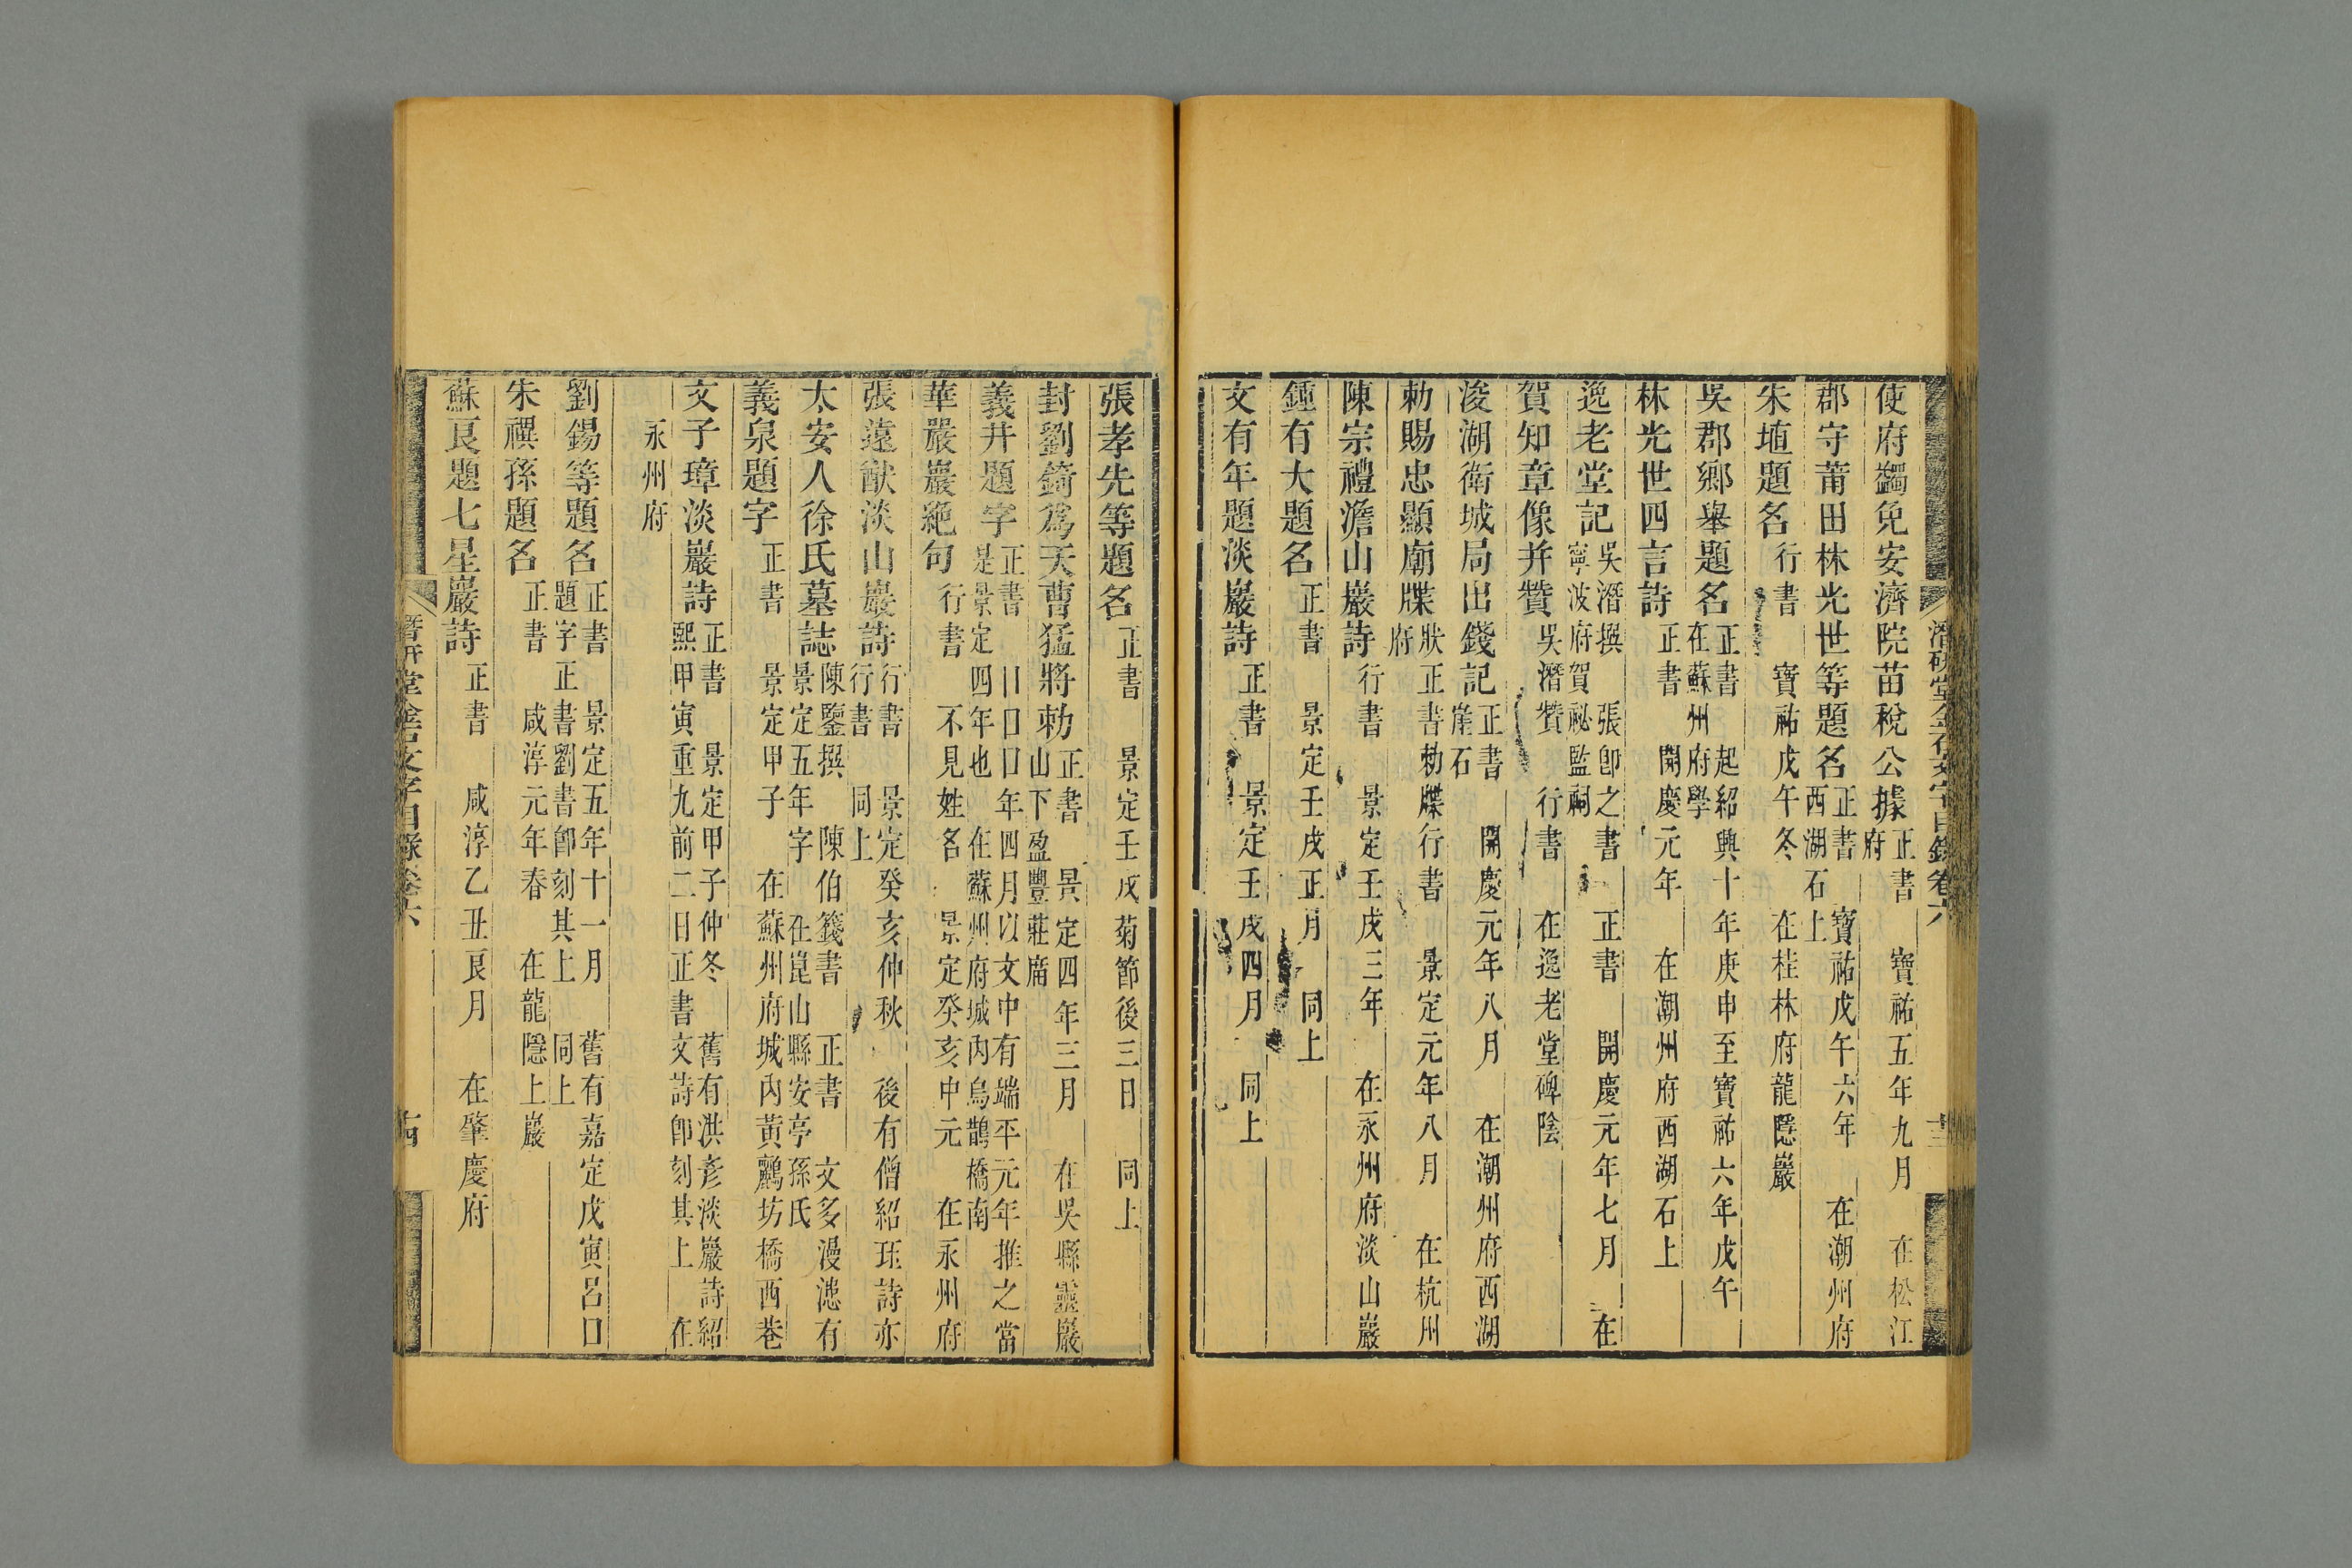 潛研堂金石文字目錄卷六
使府蠲免安濟院苗稅公據 正書 寶祐五年九月 在松江府
郡守莆田林光世等題名 正書 寶祐戊午六年 在潮州府西湖石上
朱埴題名 行書 寶祐戊午冬 在桂林府龍隱巖
吳郡鄉舉題名 正書 起紹興十年庚申至寶祐六年戊午 在蘇州府學
林光世四言詩 正書 開慶元年 在潮州府西湖石上
逸老堂記 吳潛撰 張卽之書 正書 開慶元年七月 在寧波府賀祕監祠
賀知章像并贊 吳潛贊 行書 在逸老堂碑陰
浚湖衛城局出錢記 正書 開慶元年八月 在潮州府西湖崖石
勅賜忠顯廟牒 狀正書勅牒行書 景定元年八月 在杭州府
陳宗禮澹山巖詩 行書 景定壬戌三年 在永州府淡山巖
鍾有大題名 正書 景定壬戌正月 同上
文有年題淡巖詩 正書 景定壬戌四月 同上
張孝先等題名 正書 景定壬戌菊節後三日 同上
封劉錡爲天曹猛將勅 正書 景定四年三月 在吳縣靈巖山下盈豐莊廟
義井題字 正書 口口口年四月以文中有端平元年推之當是景定四年也 在蘇州府城內烏鵲橋南
華嚴巖絕句 行書 不見姓名 景定癸亥中元 在永州府
張遠猷淡山巖詩 行書 景定癸亥仲秋 後有僧紹珏詩亦行書 同上
太安人徐氏墓誌 陳鑒撰 陳伯籛書 正書 文多漫漶有景定五年字 在崑山縣安亭孫氏
義泉題字 正書 景定甲子 在蘇州府城內黃鸝坊橋西巷
文子璋淡巖詩 正書 景定甲子仲冬 舊有洪彥淡巖詩紹熙甲寅重九前二日正書文詩卽刻其上 在
永州府
劉錫等題名 正書 景定五年十一月 舊有嘉定戊寅呂口題字正書劉書卽刻其上 同上
朱禩孫題名 正書 咸淳元年春 在龍隱上巖
蘇良題七星巖詩 正書 咸淳乙丑良月 在肇慶府
堂金石文字目錄卷六